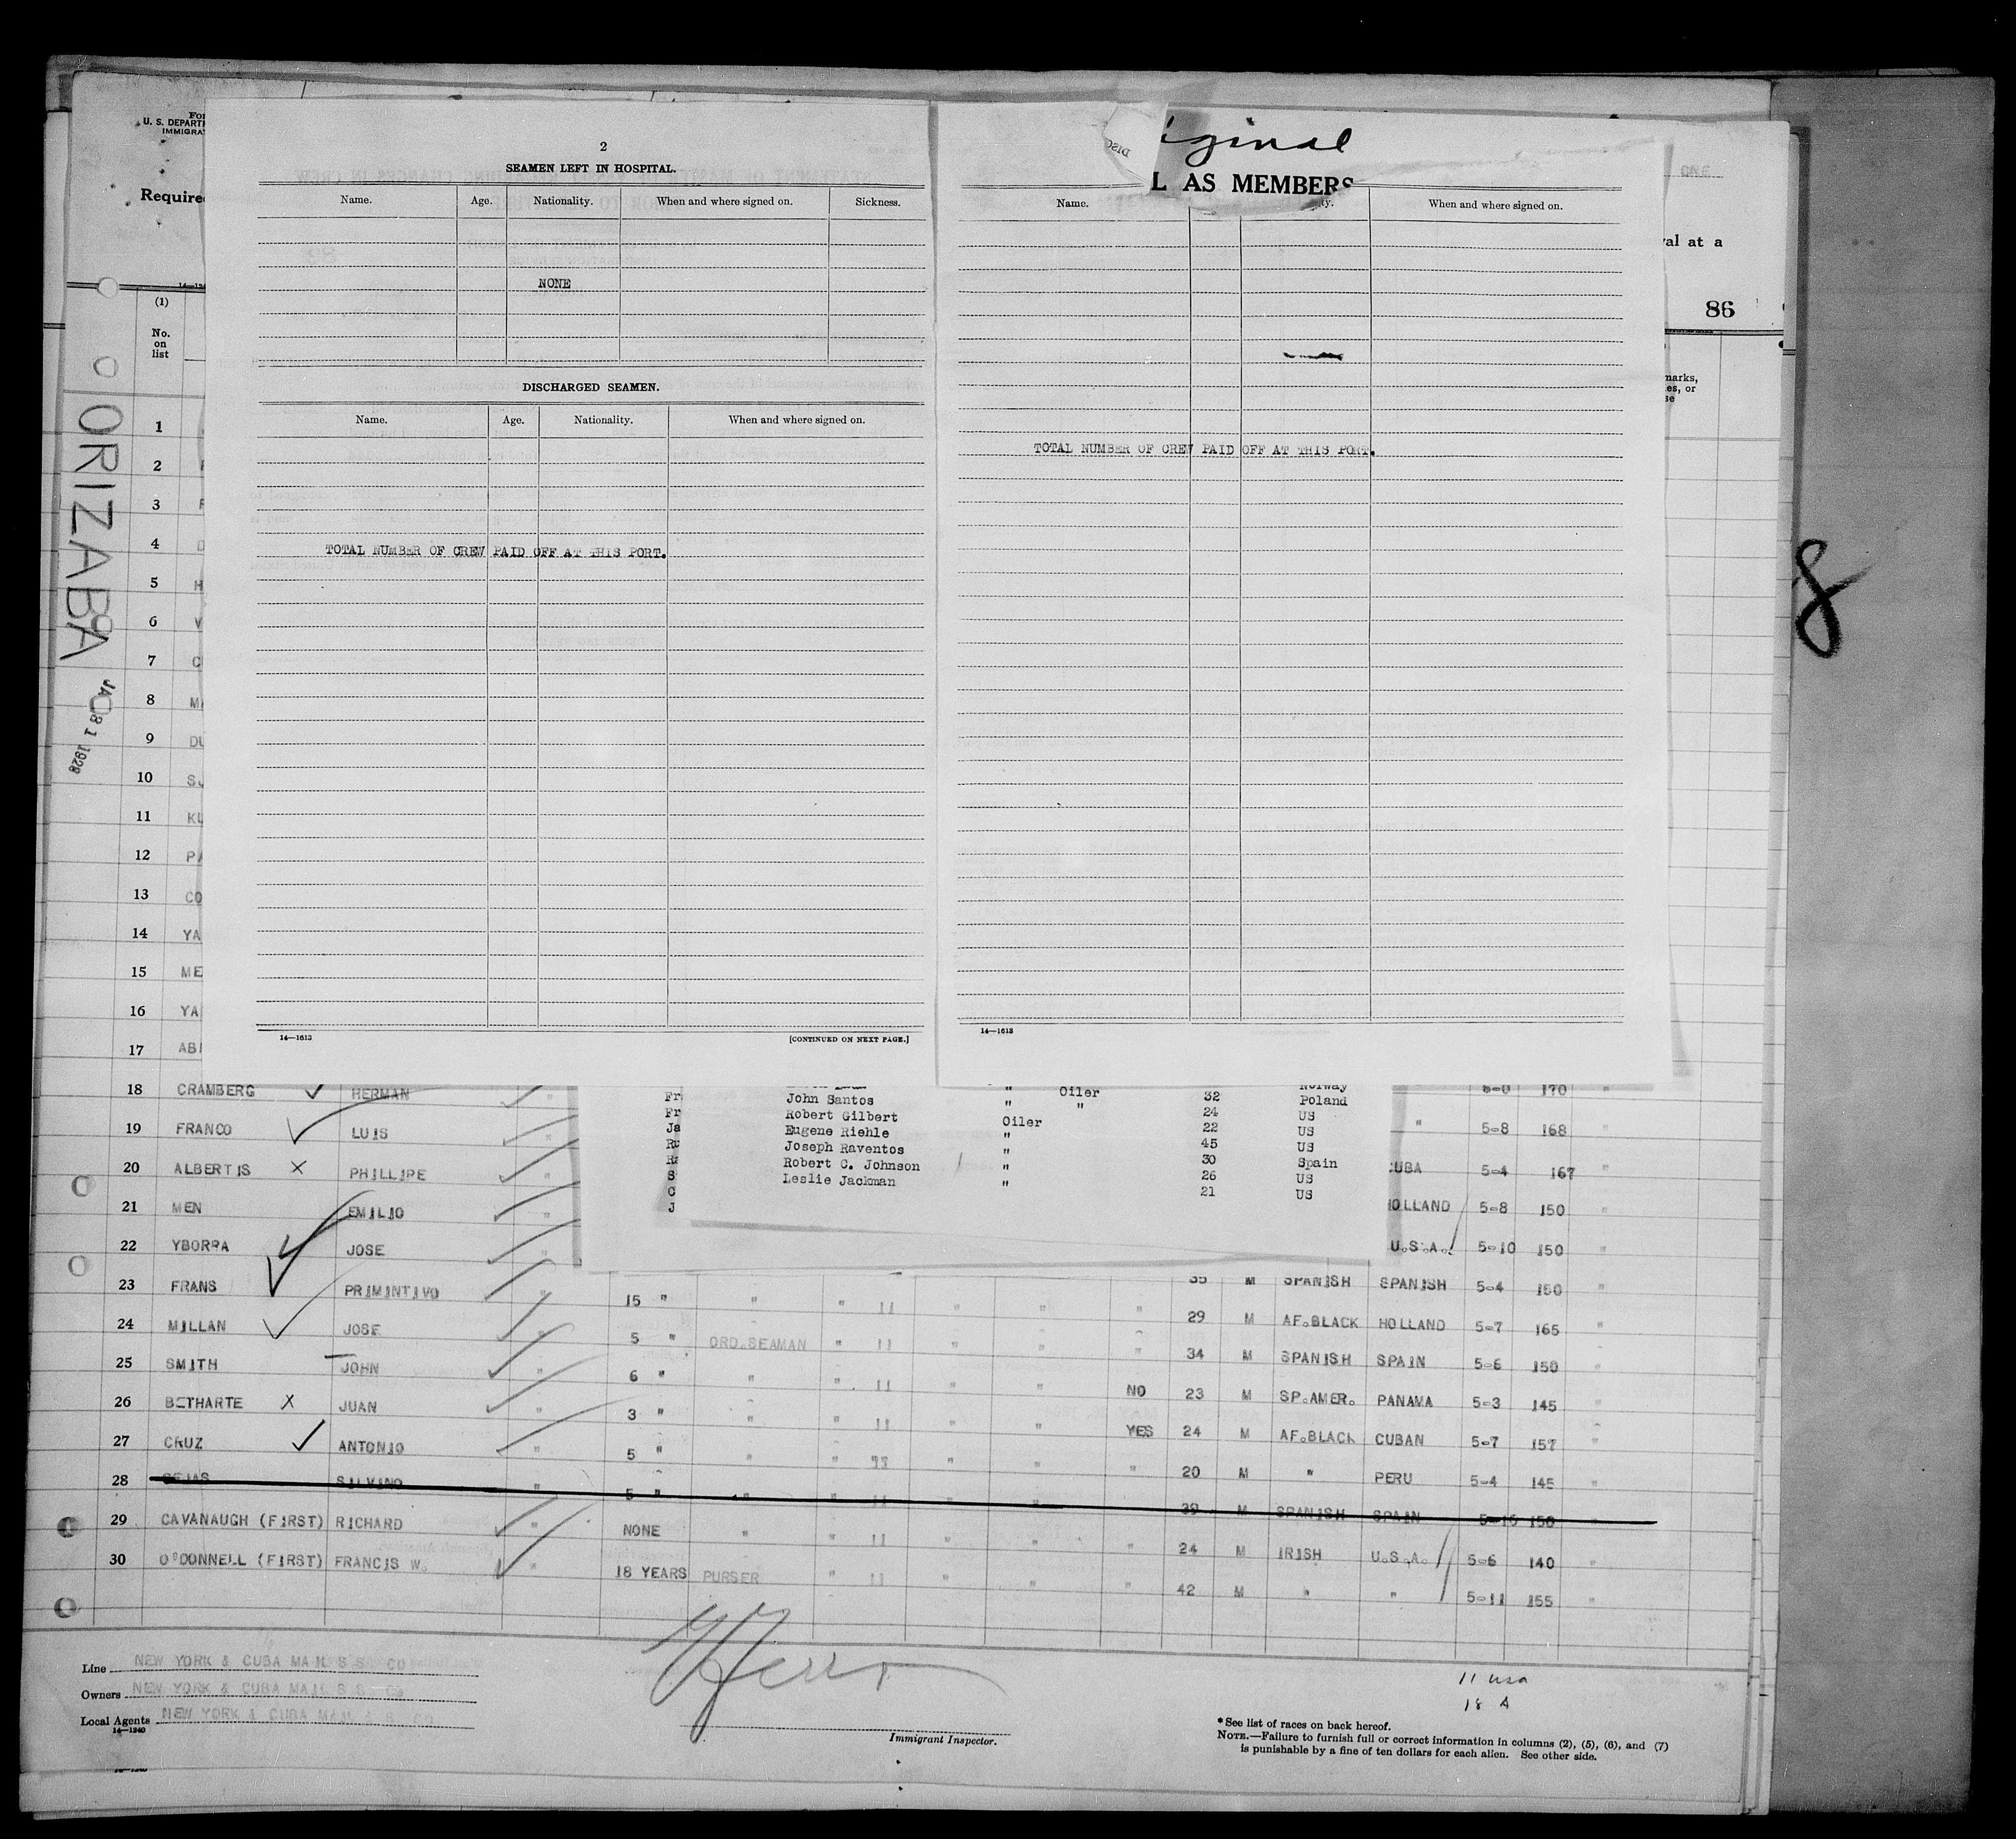 For
U. S. DEPART
IMMIGRA
Require
2
SEAMEN LEFT IN HOSPITAL.
Name. Age. Nationality. When and where signed on. Sickness.
NONE
DISCHARGED SEAMEN.
Name. Age. Nationality. When and where signed on.
TOTAL NUMBER OF CREW PAID OFF AT THIS PORT.
14—1613 [CONTINUED ON NEXT PAGE.]
iginal
L AS MEMBERS
Name. ty. When and where signed on.
TOTAL NUMBER OF CREW PAID OFF AT THIS PORT.
14—1613
val at a
86
marks,
es, or
se
8
ORIZABA
1928
(1)
No.
on
list
1
2
3
4
5 H
6 V
7 C
8 MA
9 DU
10 SJ
11 KU
12 PA
13 CO
14 YA
15 ME
16 YA
17 ABI
18 CRAMBERG HERMAN " 5-0 170 "
19 FRANCO LUIS " " 5-8 168 "
20 ALBERTIS X PHILLIPE " CUBA 5-4 167 "
21 MEN EMILIO " HOLLAND 5-8 150 "
22 YBORRA JOSE " U.S.A. 5-10 150 "
23 FRANS PRIMINTIVO " 15 " " " 11 " " " 35 M SPANISH SPANISH 5-4 150 "
24 MILLAN JOSE " 5 " ORD.SEAMAN " 11 " " " 29 M AF.BLACK HOLLAND 5-7 165 "
25 SMITH JOHN " 6 " " " 11 " " " 34 M SPANISH SPAIN 5-6 150 "
26 BETHARTE X JUAN " 3 " " " 11 " " NO 23 M SP.AMER. PANAMA 5-3 145 "
27 CRUZ ANTONIO " 5 " " " 11 " " YES 24 M AF.BLACK CUBAN 5-7 157 "
28 SEJAS SILVINO " 5 " " " 11 " " " 20 M " PERU 5-4 145 "
29 CAVANAUGH (FIRST) RICHARD " NONE " " 11 " " " 39 M SPANISH SPAIN 5-10 150 "
30 O'DONNELL (FIRST) FRANCIS W. " 18 YEARS PURSER " 11 " " " 24 M IRISH U.S.A. 5-6 140 "
42 M " " 5-11 155 "
Fr
Fr
Ja
Ru
S
C
J
Norway
John Santos " Oiler 32 Poland
Robert Gilbert " " 24 US
Eugene Riehle Oiler 22 US
Joseph Raventos " 45 US
Robert C. Johnson " 30 Spain
Leslie Jackman " 26 US
" 21 US
Line NEW YORK & CUBA MAIL S S CO
Owners NEW YORK & CUBA MAIL S S CO
Local Agents NEW YORK & CUBA MAIL S S CO
14—1240
Immigrant Inspector.
11 usa
18 A
* See list of races on back hereof.
NOTE.—Failure to furnish full or correct information in columns (2), (5), (6), and (7)
is punishable by a fine of ten dollars for each alien. See other side.